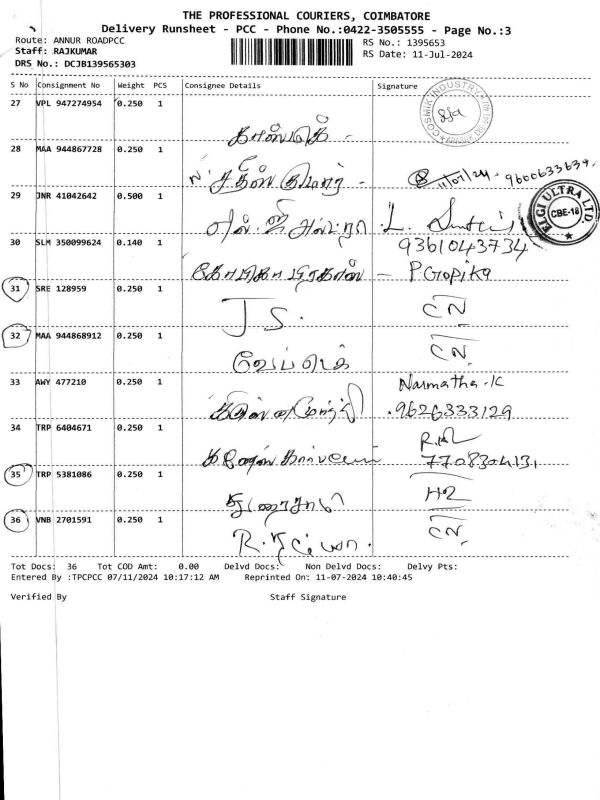 THE PROFESSIONAL COURIERS, COIMBATORE
Delivery Runsheet - PCC - Phone No.:0422-3505555 - Page No.:3
Route: ANNUR ROADPCC
RS No.: 1395653
Staff: RAJKUMAR
RS Date: 11-Jul-2024
DRS No.: DCJB139565303
S No Consignment No Weight PCS Consignee Details Signature
27 VPL 947274954 0.250 1
COSMIK INDUSTRY
28 MAA 944867728 0.250 1
N. சதீஸ் குமார் - 11/07/24 - 9600633639.
29 JNR 41042642 0.500 1
ELGI ULTRA LTD.
CBE-18
எல்.ஜி அல்ட்ரா L.
30 SLM 350099624 0.140 1 9361043734
- P Gopika
31 SRE 128959 0.250 1
J S. CN
32 MAA 944868912 0.250 1 CN
33 AWY 477210 0.250 1 Narmatha.K
.9626333129
34 TRP 6404671 0.250 1 R.
7708304131
35 TRP 5381086 0.250 1
துரைசாமி H2
36 VNB 2701591 0.250 1 CN
Tot Docs: 36 Tot COD Amt: 0.00 Delvd Docs: Non Delvd Docs: Delvy Pts:
Entered By :TPCPCC 07/11/2024 10:17:12 AM Reprinted On: 11-07-2024 10:40:45
Verified By Staff Signature